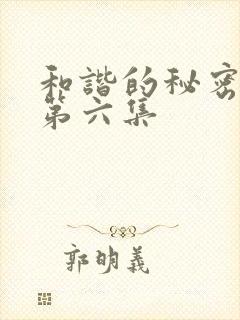 和諧的秘密
第六集
郭明義